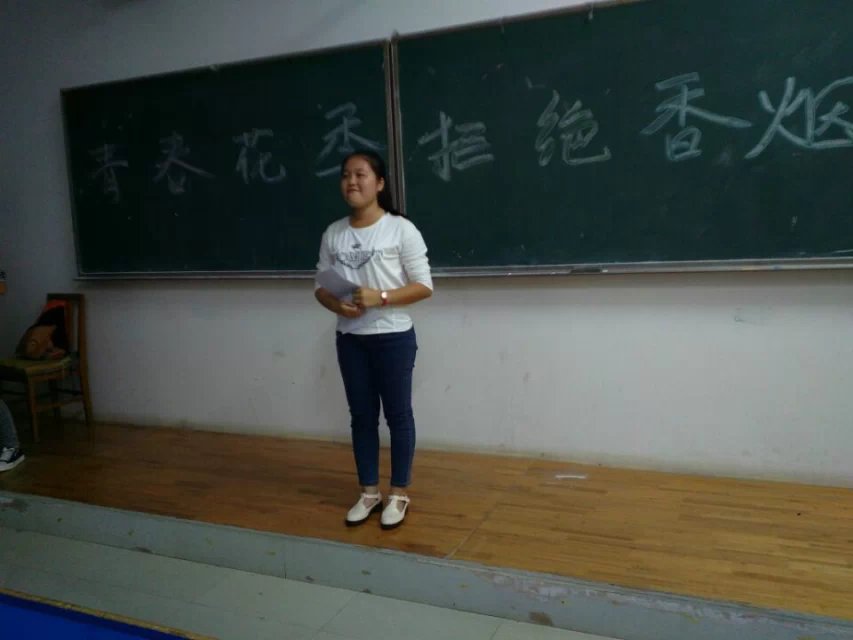 青春花季 拒绝香烟